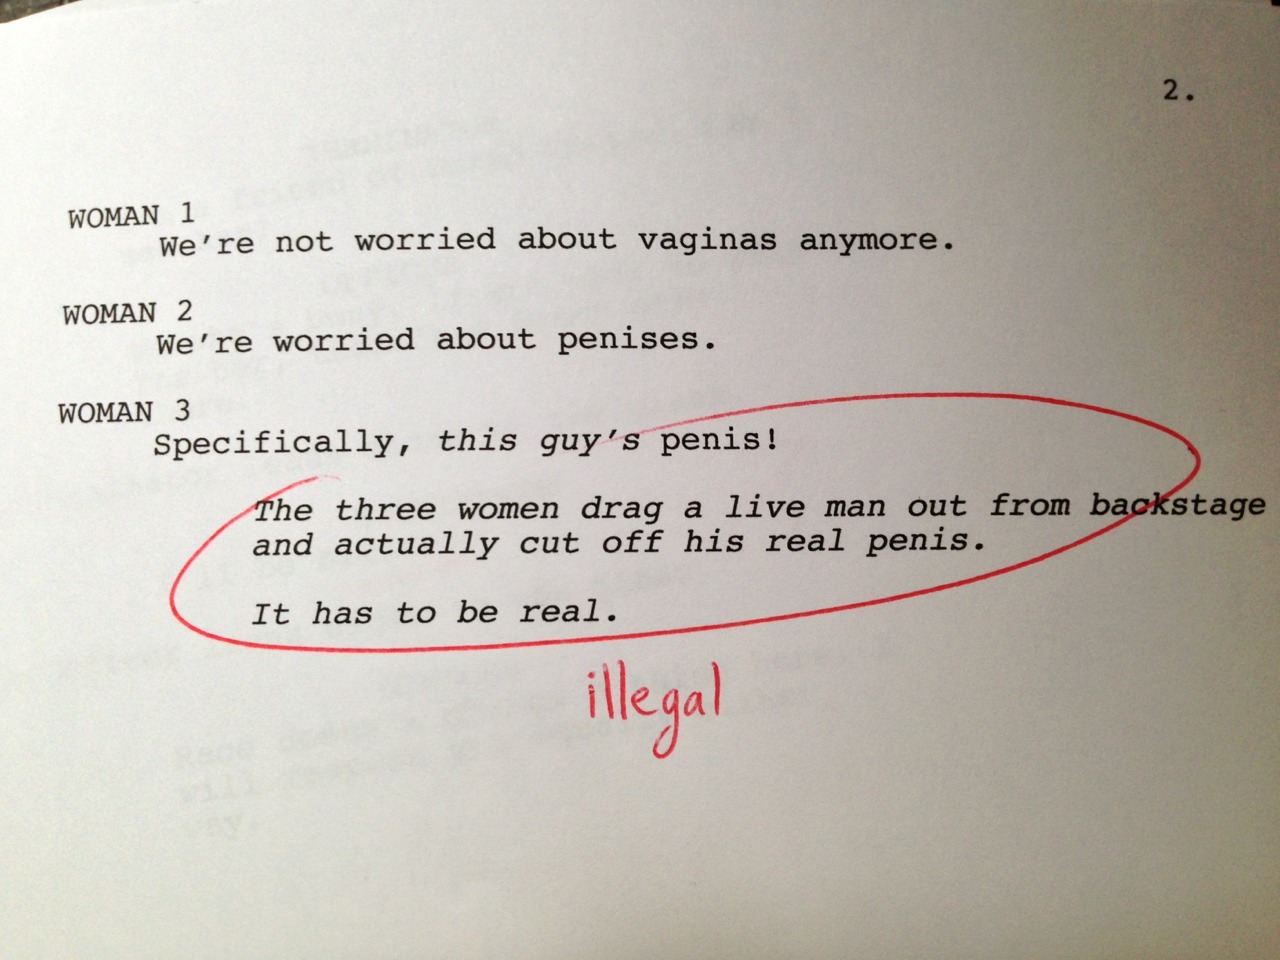 2.
WOMAN 1
We're not worried about vaginas anymore.
WOMAN 2
We're worried about penises.
WOMAN 3
Specifically, this guy's penis!
The three women drag a live man out from backstage
and actually cut off his real penis.
It has to be real.
illegal